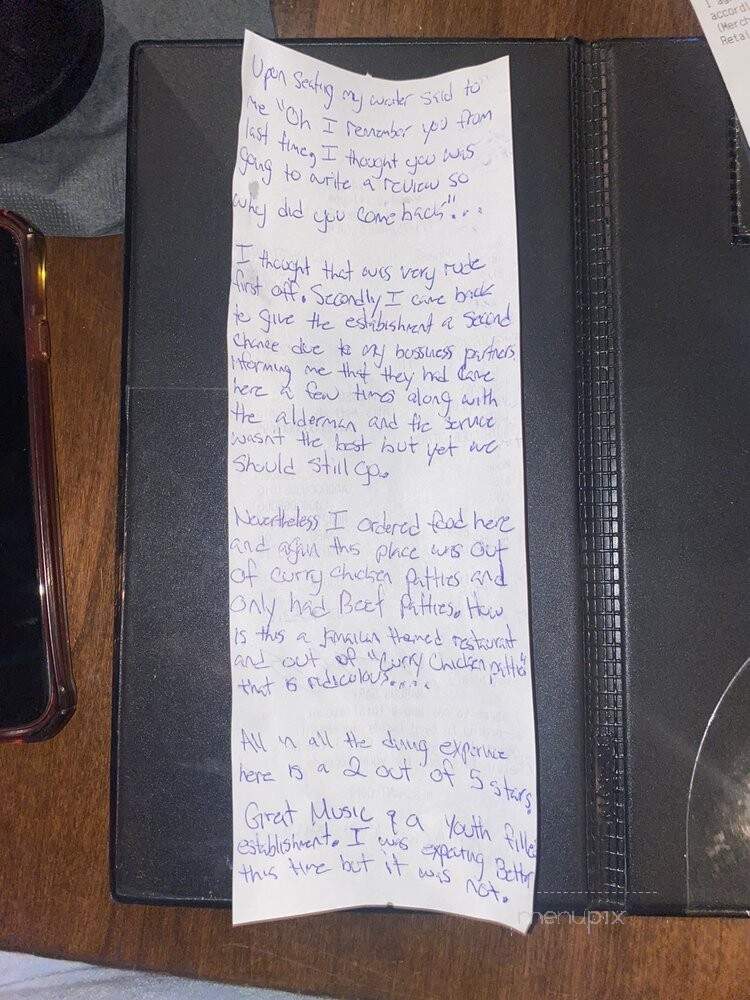 I a
accord
(Merch
Retai
Upon Seating my waiter said to
me "Oh I remember you from
last time, I thought you was
going to write a review so
why did you come back"...
I thought that was very rude
first off. Secondly I came back
to give the establishment a Second
Chance due to my bussiness partners
informing me that they had came
here a few times along with
the alderman and the service
wasn't the best but yet we
should still Go.
Nevertheless I ordered food here
and again this place was out
of curry chicken patties and
only had Beef Patties. How
is this a Jamaican themed restaurant
and out of "Curry Chicken patties"
that is ridiculous.....
All n all the dining experince
here is a 2 out of 5 stars.
Great Music & a Youth fille
establishment. I was expecting Better
this time but it was not.
menupix